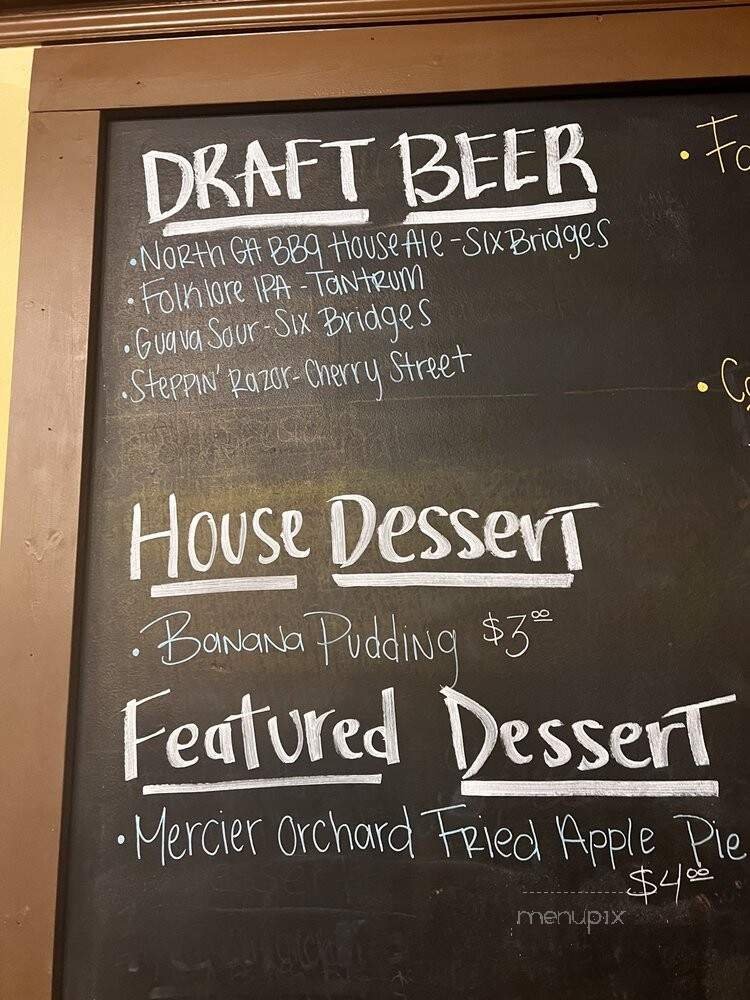 DRAFT BEER
• North GA BBQ House Ale - Six Bridges
• Folklore IPA - Tantrum
• Guava Sour - Six Bridges
• Steppin' Razor - Cherry Street
House Dessert
• Banana Pudding $3.00
Featured Dessert
• Mercier Orchard Fried Apple Pie
$4.00
menupix